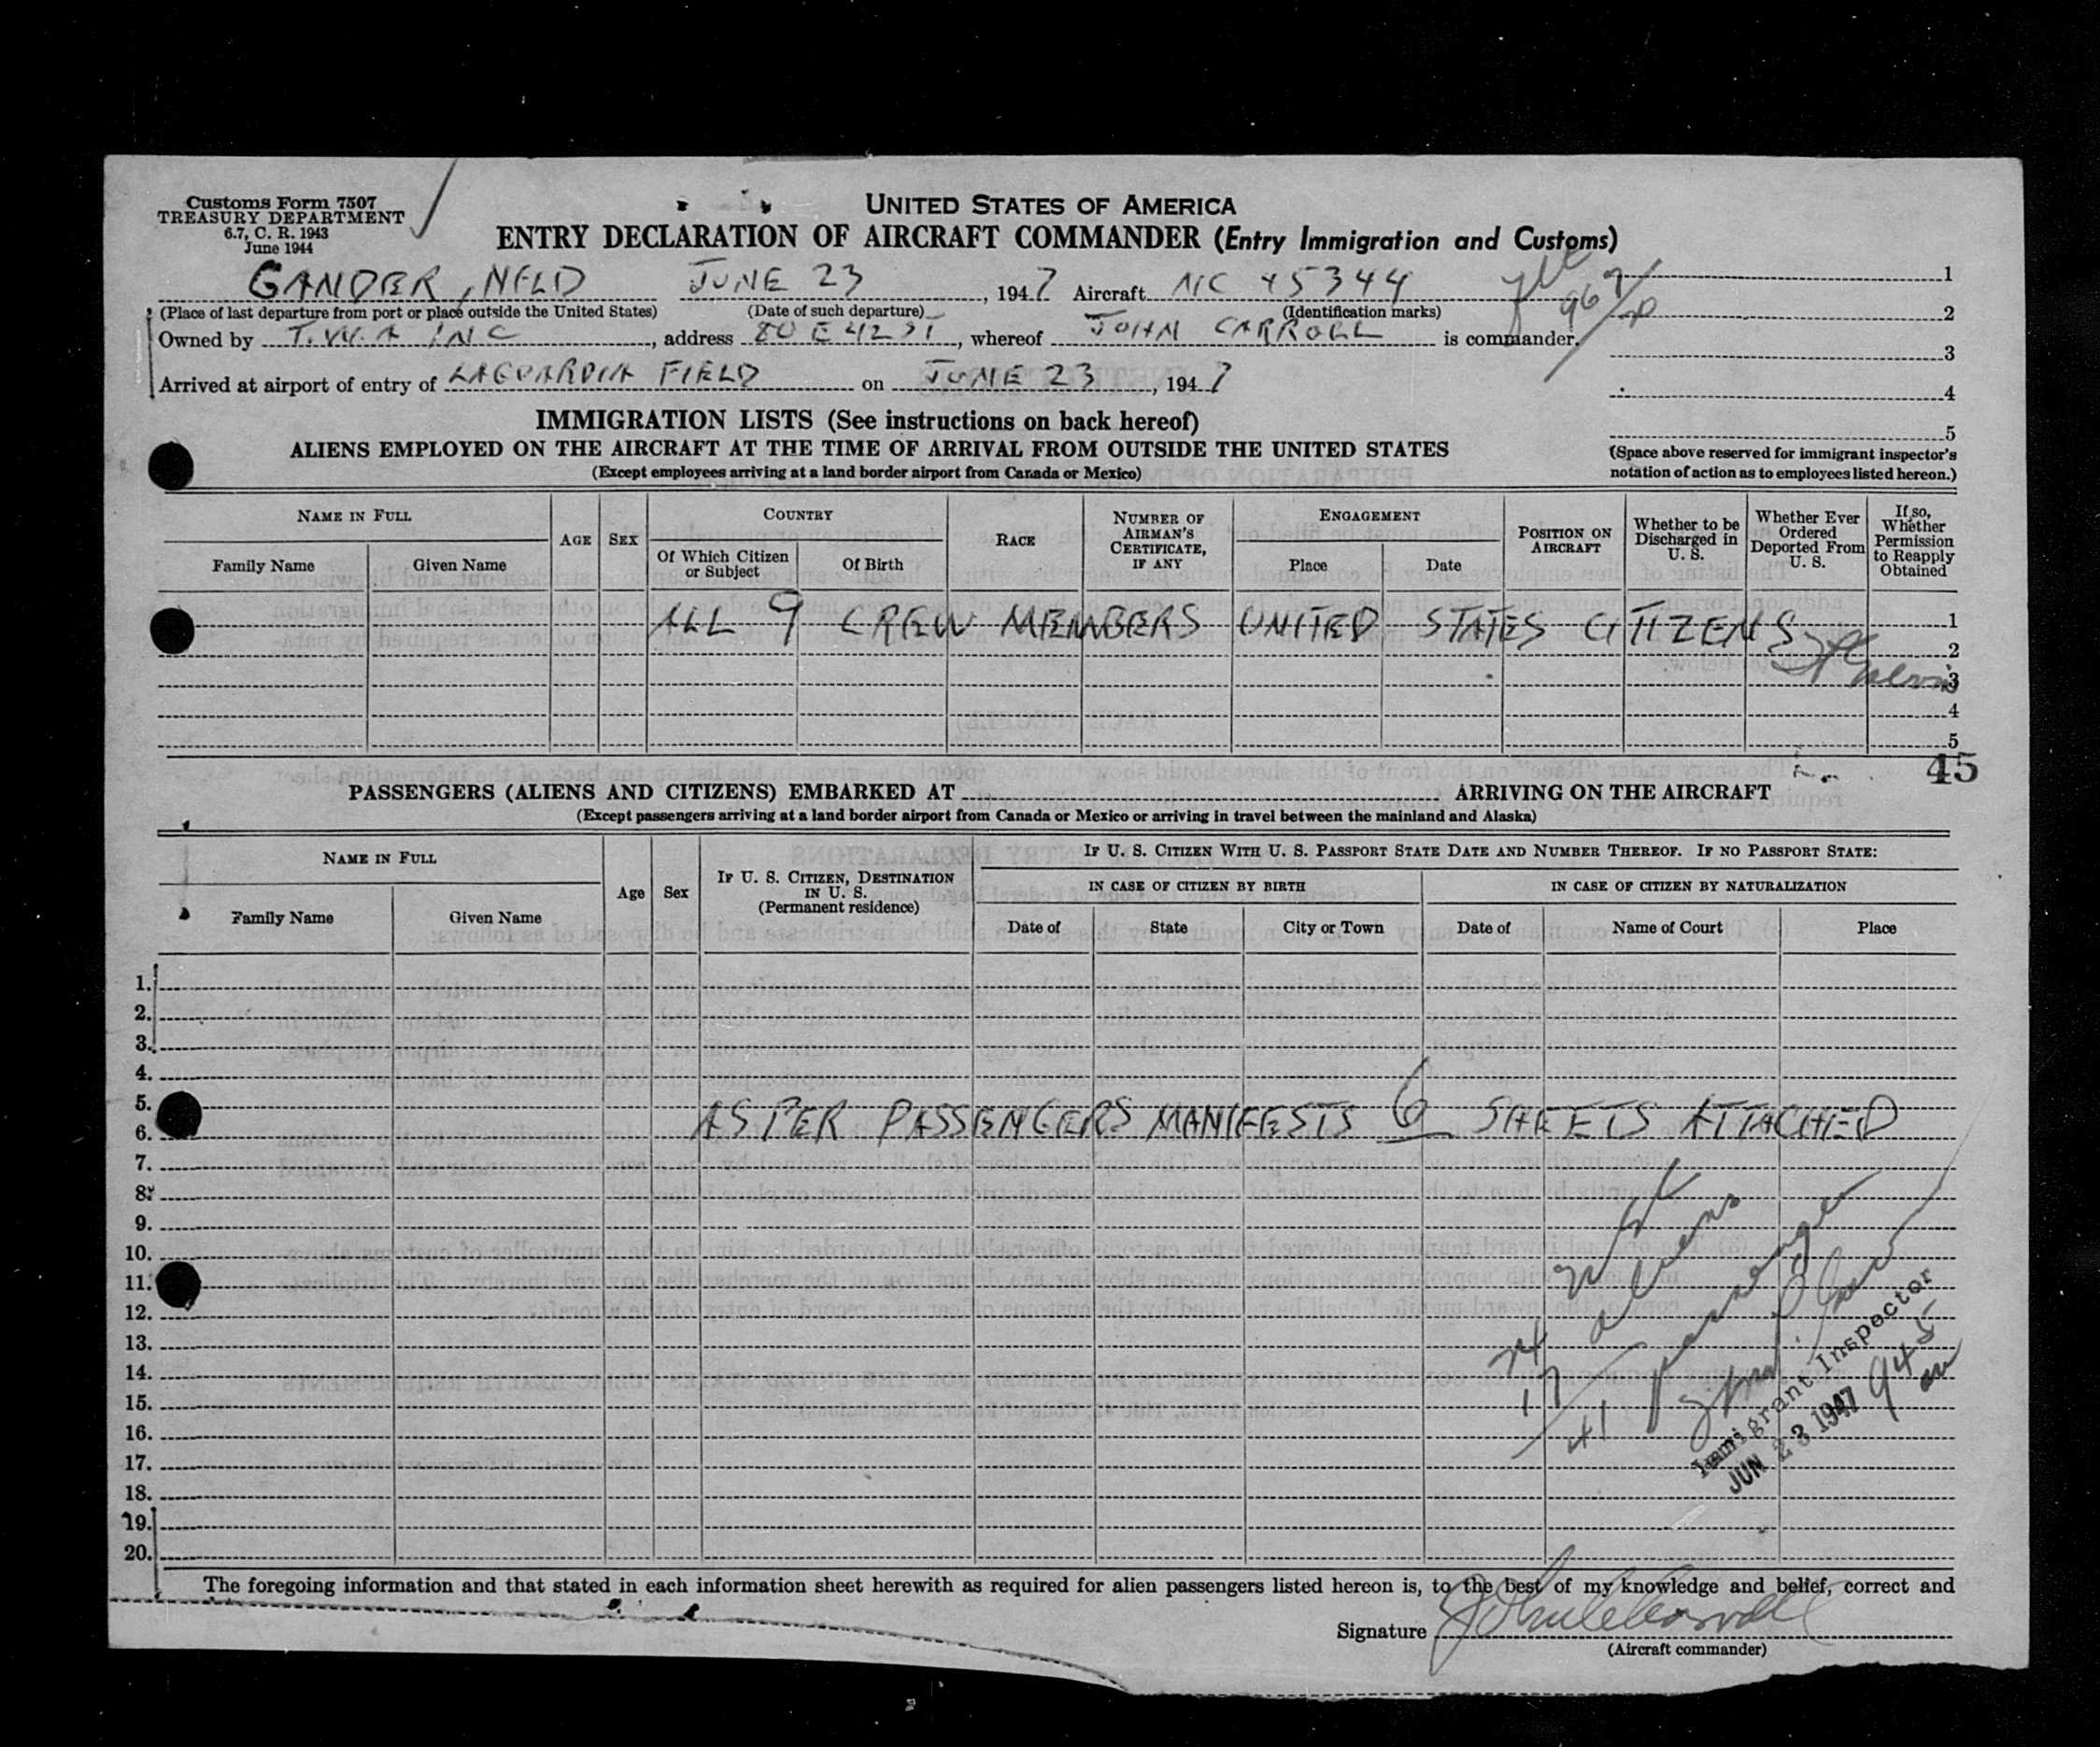 Customs Form 7507
TREASURY DEPARTMENT
6.7, C. R. 1943
June 1944
UNITED STATES OF AMERICA
ENTRY DECLARATION OF AIRCRAFT COMMANDER (Entry Immigration and Customs)
GANDER, NFLD JUNE 23, 1947 Aircraft NC 45344
(Place of last departure from port or place outside the United States) (Date of such departure) (Identification marks)
Owned by T.W.A INC, address 80 E 42 ST, whereof JOHN CARROLL is commander.
Arrived at airport of entry of LAGUARDIA FIELD on JUNE 23, 1947
967
1
2
3
4
5
(Space above reserved for immigrant inspector's
notation of action as to employees listed hereon.)
IMMIGRATION LISTS (See instructions on back hereof)
ALIENS EMPLOYED ON THE AIRCRAFT AT THE TIME OF ARRIVAL FROM OUTSIDE THE UNITED STATES
(Except employees arriving at a land border airport from Canada or Mexico)
NAME IN FULL
Family Name
Given Name
AGE
SEX
COUNTRY
Of Which Citizen
or Subject
Of Birth
RACE
NUMBER OF
AIRMAN'S
CERTIFICATE,
IF ANY
ENGAGEMENT
Place
Date
POSITION ON
AIRCRAFT
Whether to be
Discharged in
U. S.
Whether Ever
Ordered
Deported From
U. S.
If so,
Whether
Permission
to Reapply
Obtained
ALL 9 CREW MEMBERS UNITED STATES CITIZENS
1
2
3
4
5
45
PASSENGERS (ALIENS AND CITIZENS) EMBARKED AT ARRIVING ON THE AIRCRAFT
(Except passengers arriving at a land border airport from Canada or Mexico or arriving in travel between the mainland and Alaska)
NAME IN FULL
Family Name
Given Name
Age
Sex
IF U. S. CITIZEN, DESTINATION
IN U. S.
(Permanent residence)
IF U. S. CITIZEN WITH U. S. PASSPORT STATE DATE AND NUMBER THEREOF. IF NO PASSPORT STATE:
IN CASE OF CITIZEN BY BIRTH
Date of
State
City or Town
IN CASE OF CITIZEN BY NATURALIZATION
Date of
Name of Court
Place
1.
2.
3.
4.
5.
6.
AS PER PASSENGERS MANIFESTS 6 SHEETS ATTACHED
7.
8.
9.
10.
11.
12.
13.
14.
15.
16.
17.
18.
19.
20.
24 USC
17 aliens
41 passenger
Immigrant Inspector
JUN 23 1947
945 am
The foregoing information and that stated in each information sheet herewith as required for alien passengers listed hereon is, to the best of my knowledge and belief, correct and
Signature John C Carroll
(Aircraft commander)